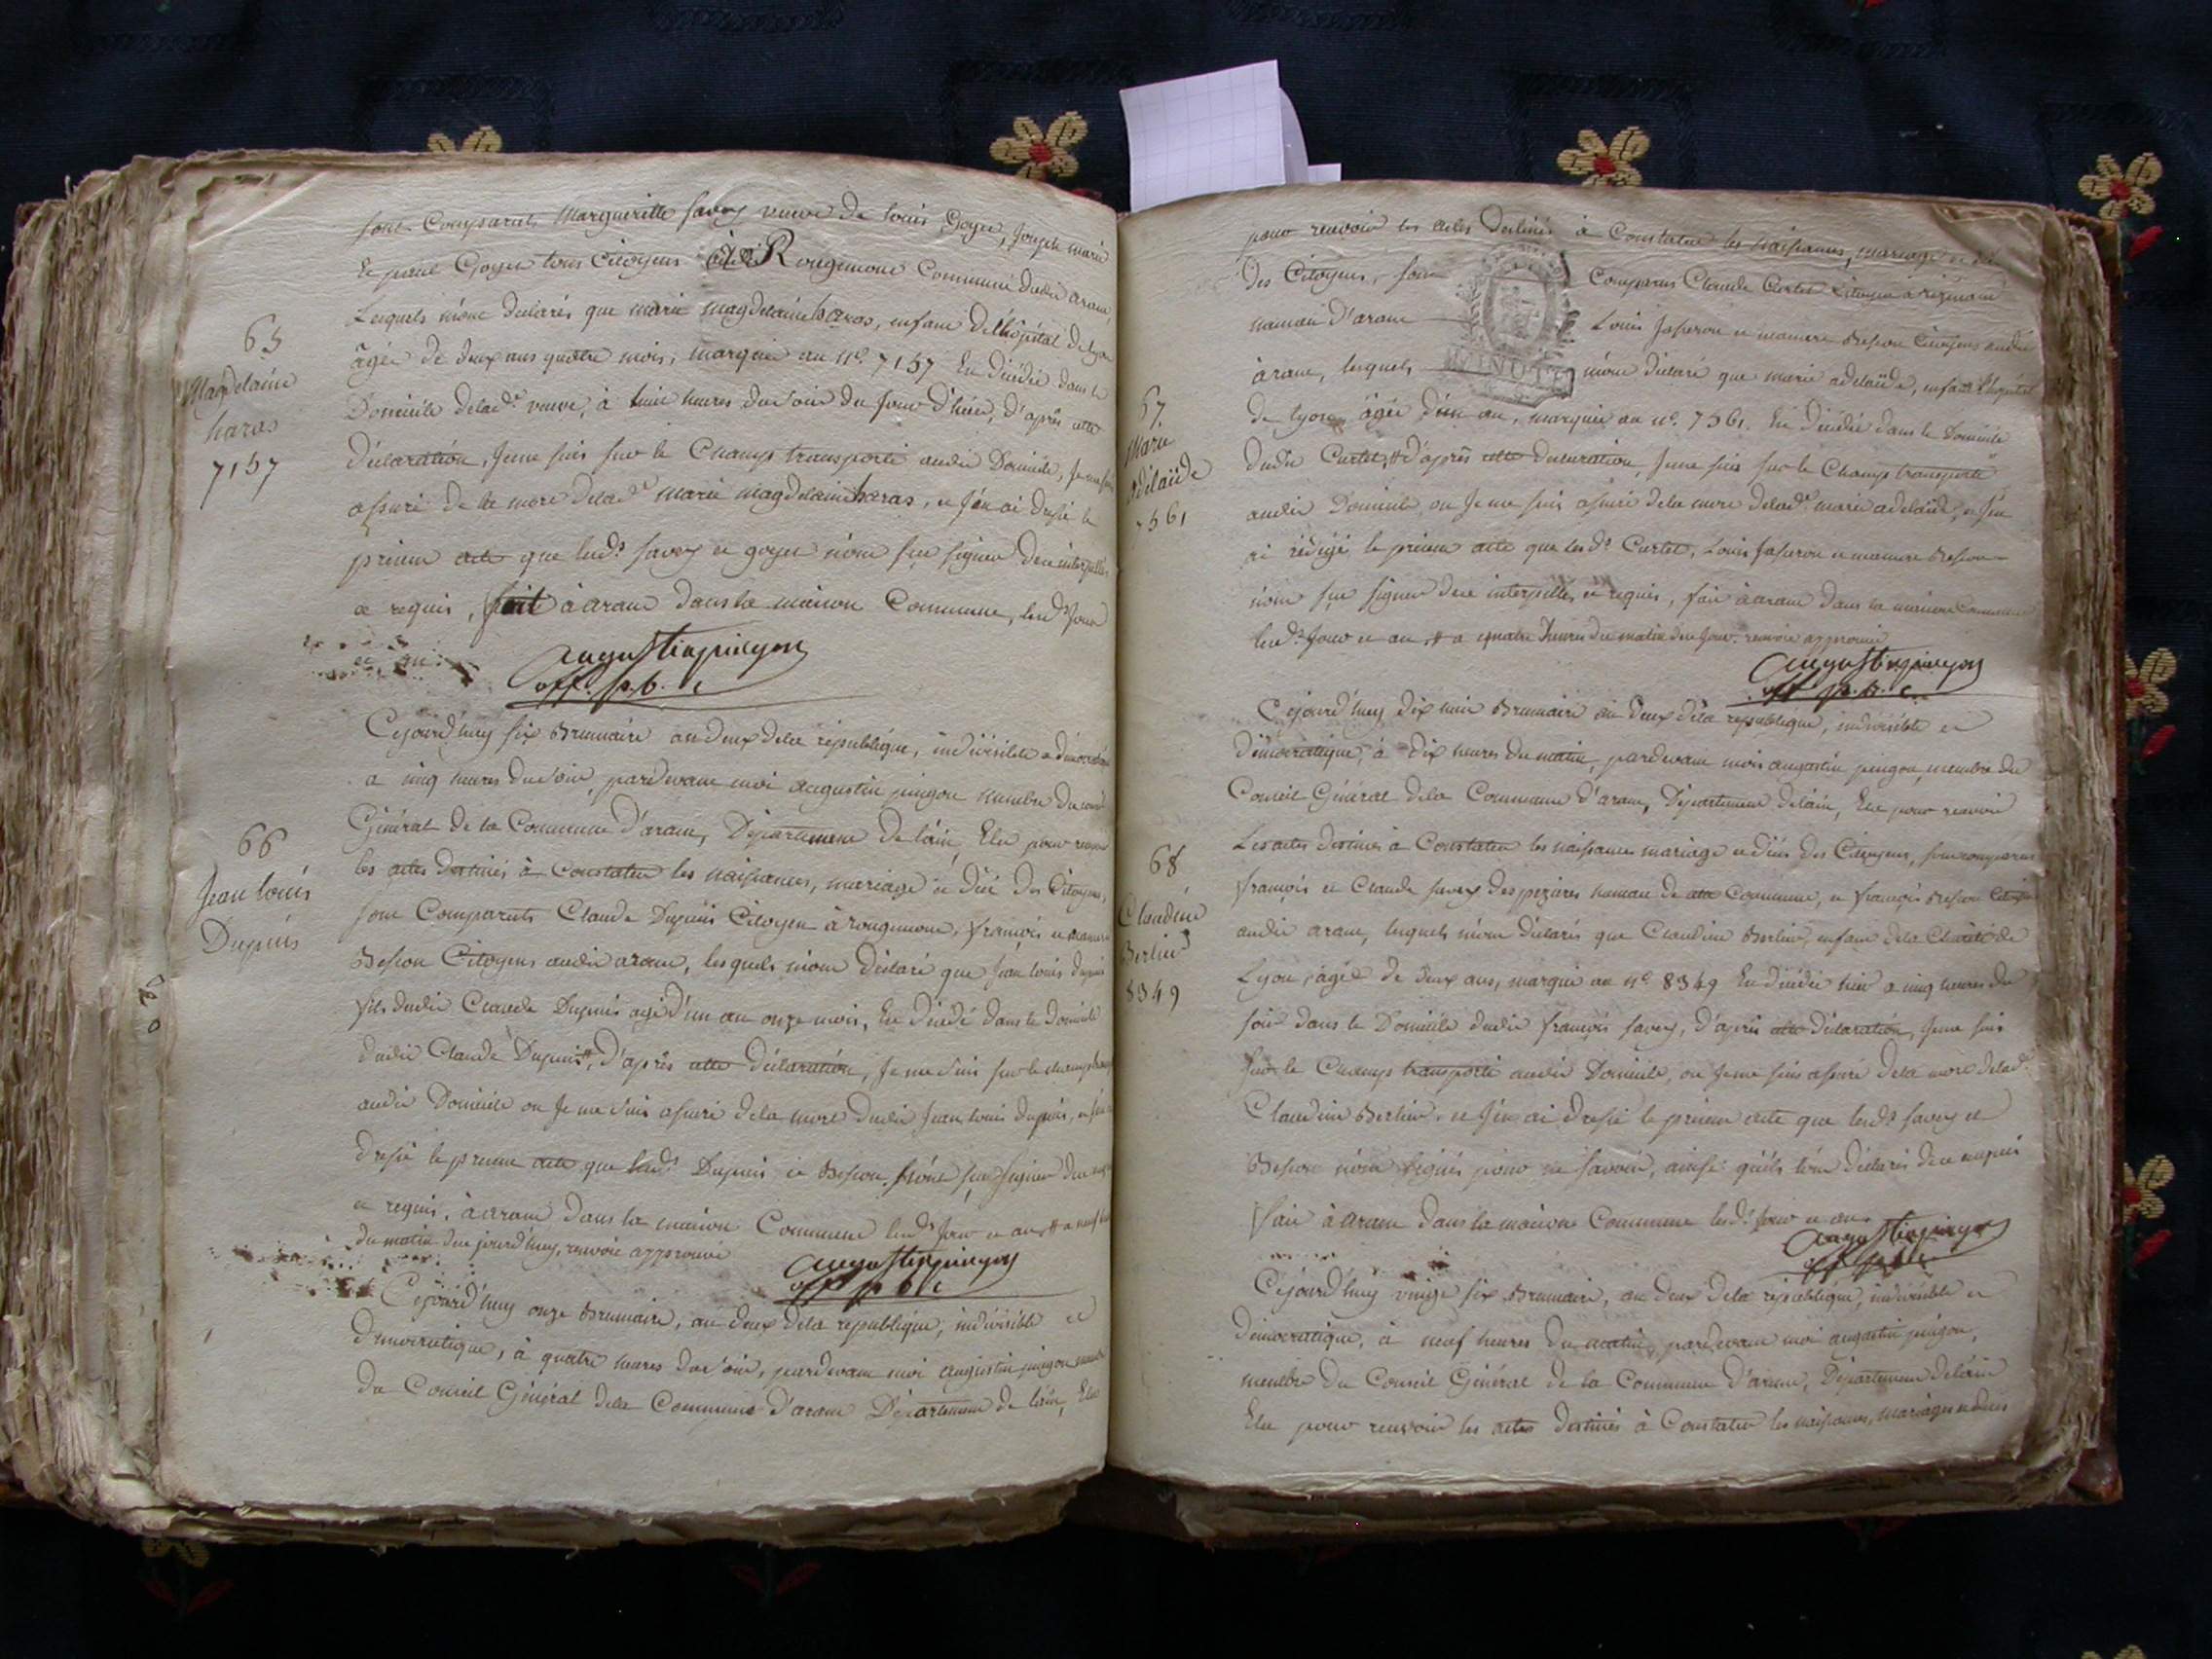 sont Comparuts Margueritte savey veuve de Louis Goyet, Joseph marie
et paul Goyet tous Citoyens à Rougemont Commune dudit aranc,
Lesquels m'ont declarés que marie magdelaine haras, enfant de l'hopital de lyon
âgée de deux ans quatre mois, marquée au n.o 7157 Est décédée dans le
Domicile delad.e veuve, à huit heures du soir du jour d'hier, d'après cette
déclaration, Je me suis sur le Champs transporté audit Domicile, Je me suis
assuré de la mort delad.e marie magdelaine haras, et j'en ai dressé le
présent acte que lesd.s savey et goyet n'ont sçu signer de ce interpellés
et requis, fait à aranc dans la maison Commune, lesd.s jour
et an.
65
Magdelaine
haras
7157
augustin pingon
off. p. b. c
Cejourd'huy six Brumaire an deux dela république, indivisible et démocratique
a cinq heures du soir, pardevant moi augustin pingon membre du conseil
Général de la Commune d'aranc, Département de l'ain, Elu pour recevoir
les actes destinés à Constater les naissances, mariage et décé des Citoyens,
sont Comparuts Claude Dupuis Citoyen à rougemont, françois et
Besson Citoyens audit aranc, lesquels m'ont déclaré que Jean louis dupuis
fils dudit Claude Dupuis agé d'un an onze mois, Est décédé dans le domicile
dudit Claude Dupuis#, d'après cette déclaration, Je me suis sur le champ
audit Domicile ou Je me suis assuré dela mort dudit Jean louis dupuis, et j'en ai
dressé le présent acte que lesd.s Dupuis et Besson n'ont sçu signer de ce
et requis, à aranc dans la maison Commune lesd.s jour et an # a neuf heures
du matin de ce jourd'huy, renvoie approuvé
66
Jean louis
Dupuis
augustin pingon
off. p. b. c
Cejourd'huy onze Brumaire, an deux dela république, indivisible et
démocratique, à quatre heures du soir, pardevant moi augustin pingon membre
du Conseil Général dela Commune d'aranc Département de l'ain, Elu
pour recevoir les actes destinés à Constater les naissances, mariage et décé
des Citoyens, sont Comparus Claude Curtet Citoyen à
hameau d'aranc Louis Jaseron et Besson Citoyens audit
à aranc, lesquels m'ont déclaré que marie adelaïde, enfant l'hopital
de lyon âgée d'un an, marquée au n.o 7561. Est décédée dans le Domicile
dudit Curtet,# d'après cette déclaration, Je me suis sur le Champs transporté
audit Domicile, ou Je me suis assuré dela mort delad.e marie adelaïde, et j'en
ai rédigé le présent acte que lesd.s Curtet, Louis Jaseron et Besson
n'ont sçu signer de ce interpellés et requis, fait à aranc dans la maison commune
lesd.s jour et an # a quatre heures du matin de ce jour. renvoie approuvé
67
Marie
adélaïde
7561
MINUTE
augustin pingon
off. p. b. c
Cejourd'huy dix huit Brumaire an deux dela republique, indivisible et
démocratique, à dix heures du matin, pardevant moi augustin pingon membre du
Conseil Général dela Commune d'aranc, Département de l'ain, Elu pour recevoir
Les actes destinés à Constater les naissances mariage et décés des Citoyens, sont comparus
françois et Claude savey des pezieres hameau de cette Commune, et françois Besson Citoyen
audit aranc, lesquels m'ont déclarés que Claudine Berlin, enfant dela Charité de
Lyon, agée de deux ans, marquée au n.o 8349 Est décédée hier a cinq heures du
soir dans le Domicile dudit françois savey, d'après cette déclaration, Je me suis
sur le Champs transporté audit Domicile, ou Je me suis assuré dela mort delad.e
Claudine Berlin. et j'en ai dressé le présent acte que lesd.s savey et
Besson n'ont signés pour ne savoir, ainsi qu'ils l'ont déclarés de ce requis
fait à aranc dans la maison Commune lesd.s jour et an.
68
Claudine
Berlin
8349
augustin pingon
off p. b. c
Cejourd'huy vingt six Brumaire, an deux dela république, indivisible et
démocratique, à neuf heures du matin, pardevant moi augustin pingon,
membre du Conseil Général de la Commune d'aranc, Département de l'ain
Elu pour recevoir les actes destinés à Constater les naissances, mariages et décés